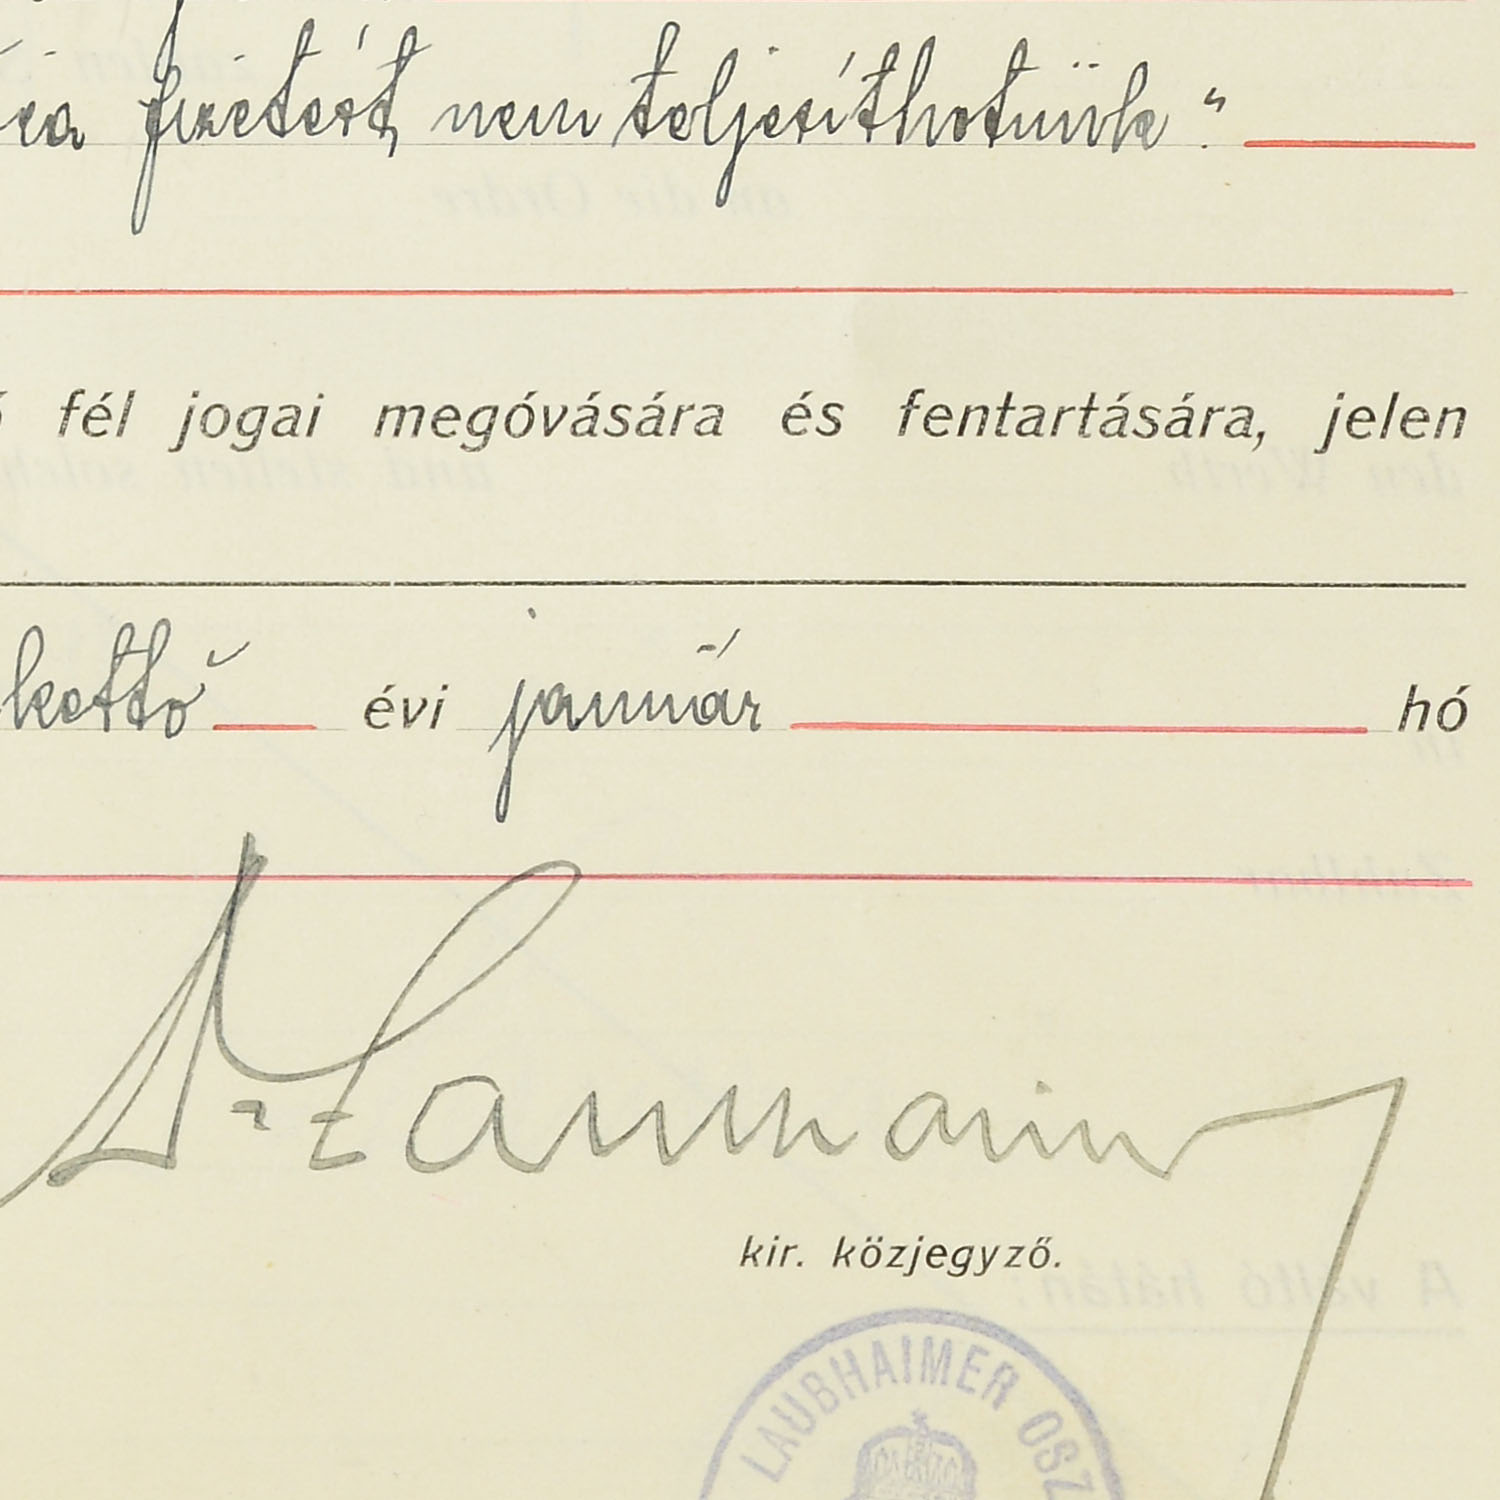 fizetést nem teljesíthetünk."
fél jogai megóvására és fentartására, jelen
kettő évi január hó
Dr
kir. közjegyző.
LAUBHAIMER OSZ